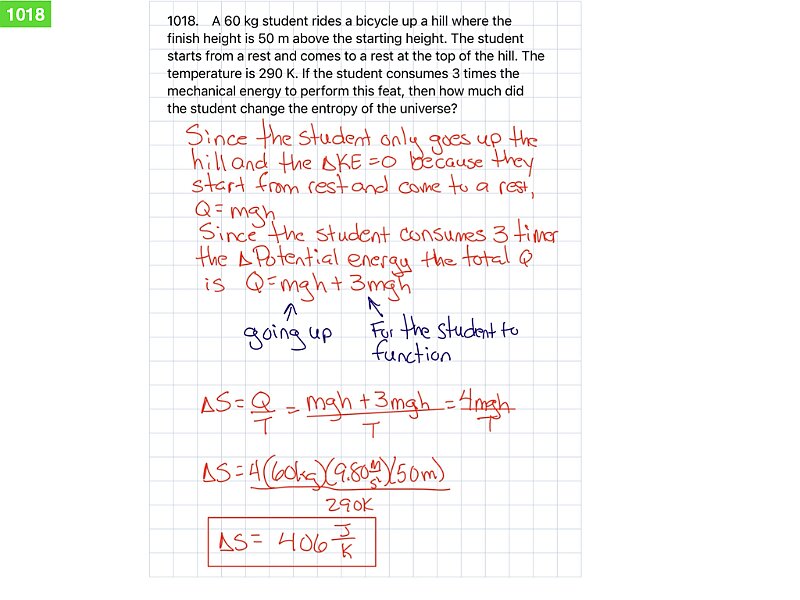 1018
1018. A 60 kg student rides a bicycle up a hill where the
finish height is 50 m above the starting height. The student
starts from a rest and comes to a rest at the top of the hill. The
temperature is 290 K. If the student consumes 3 times the
mechanical energy to perform this feat, then how much did
the student change the entropy of the universe?
Since the student only goes up the
hill and the ΔKE =0 because they
start from rest and come to a rest,
Q = mgh
Since the student consumes 3 times
the Δ Potential energy the total Q
is Q = mgh + 3mgh
going up
For the student to
function
ΔS = Q/T = (mgh + 3mgh)/T = 4mgh/T
ΔS = 4(60kg)(9.80 m/s²)(50m)/290K
ΔS = 406 J/K